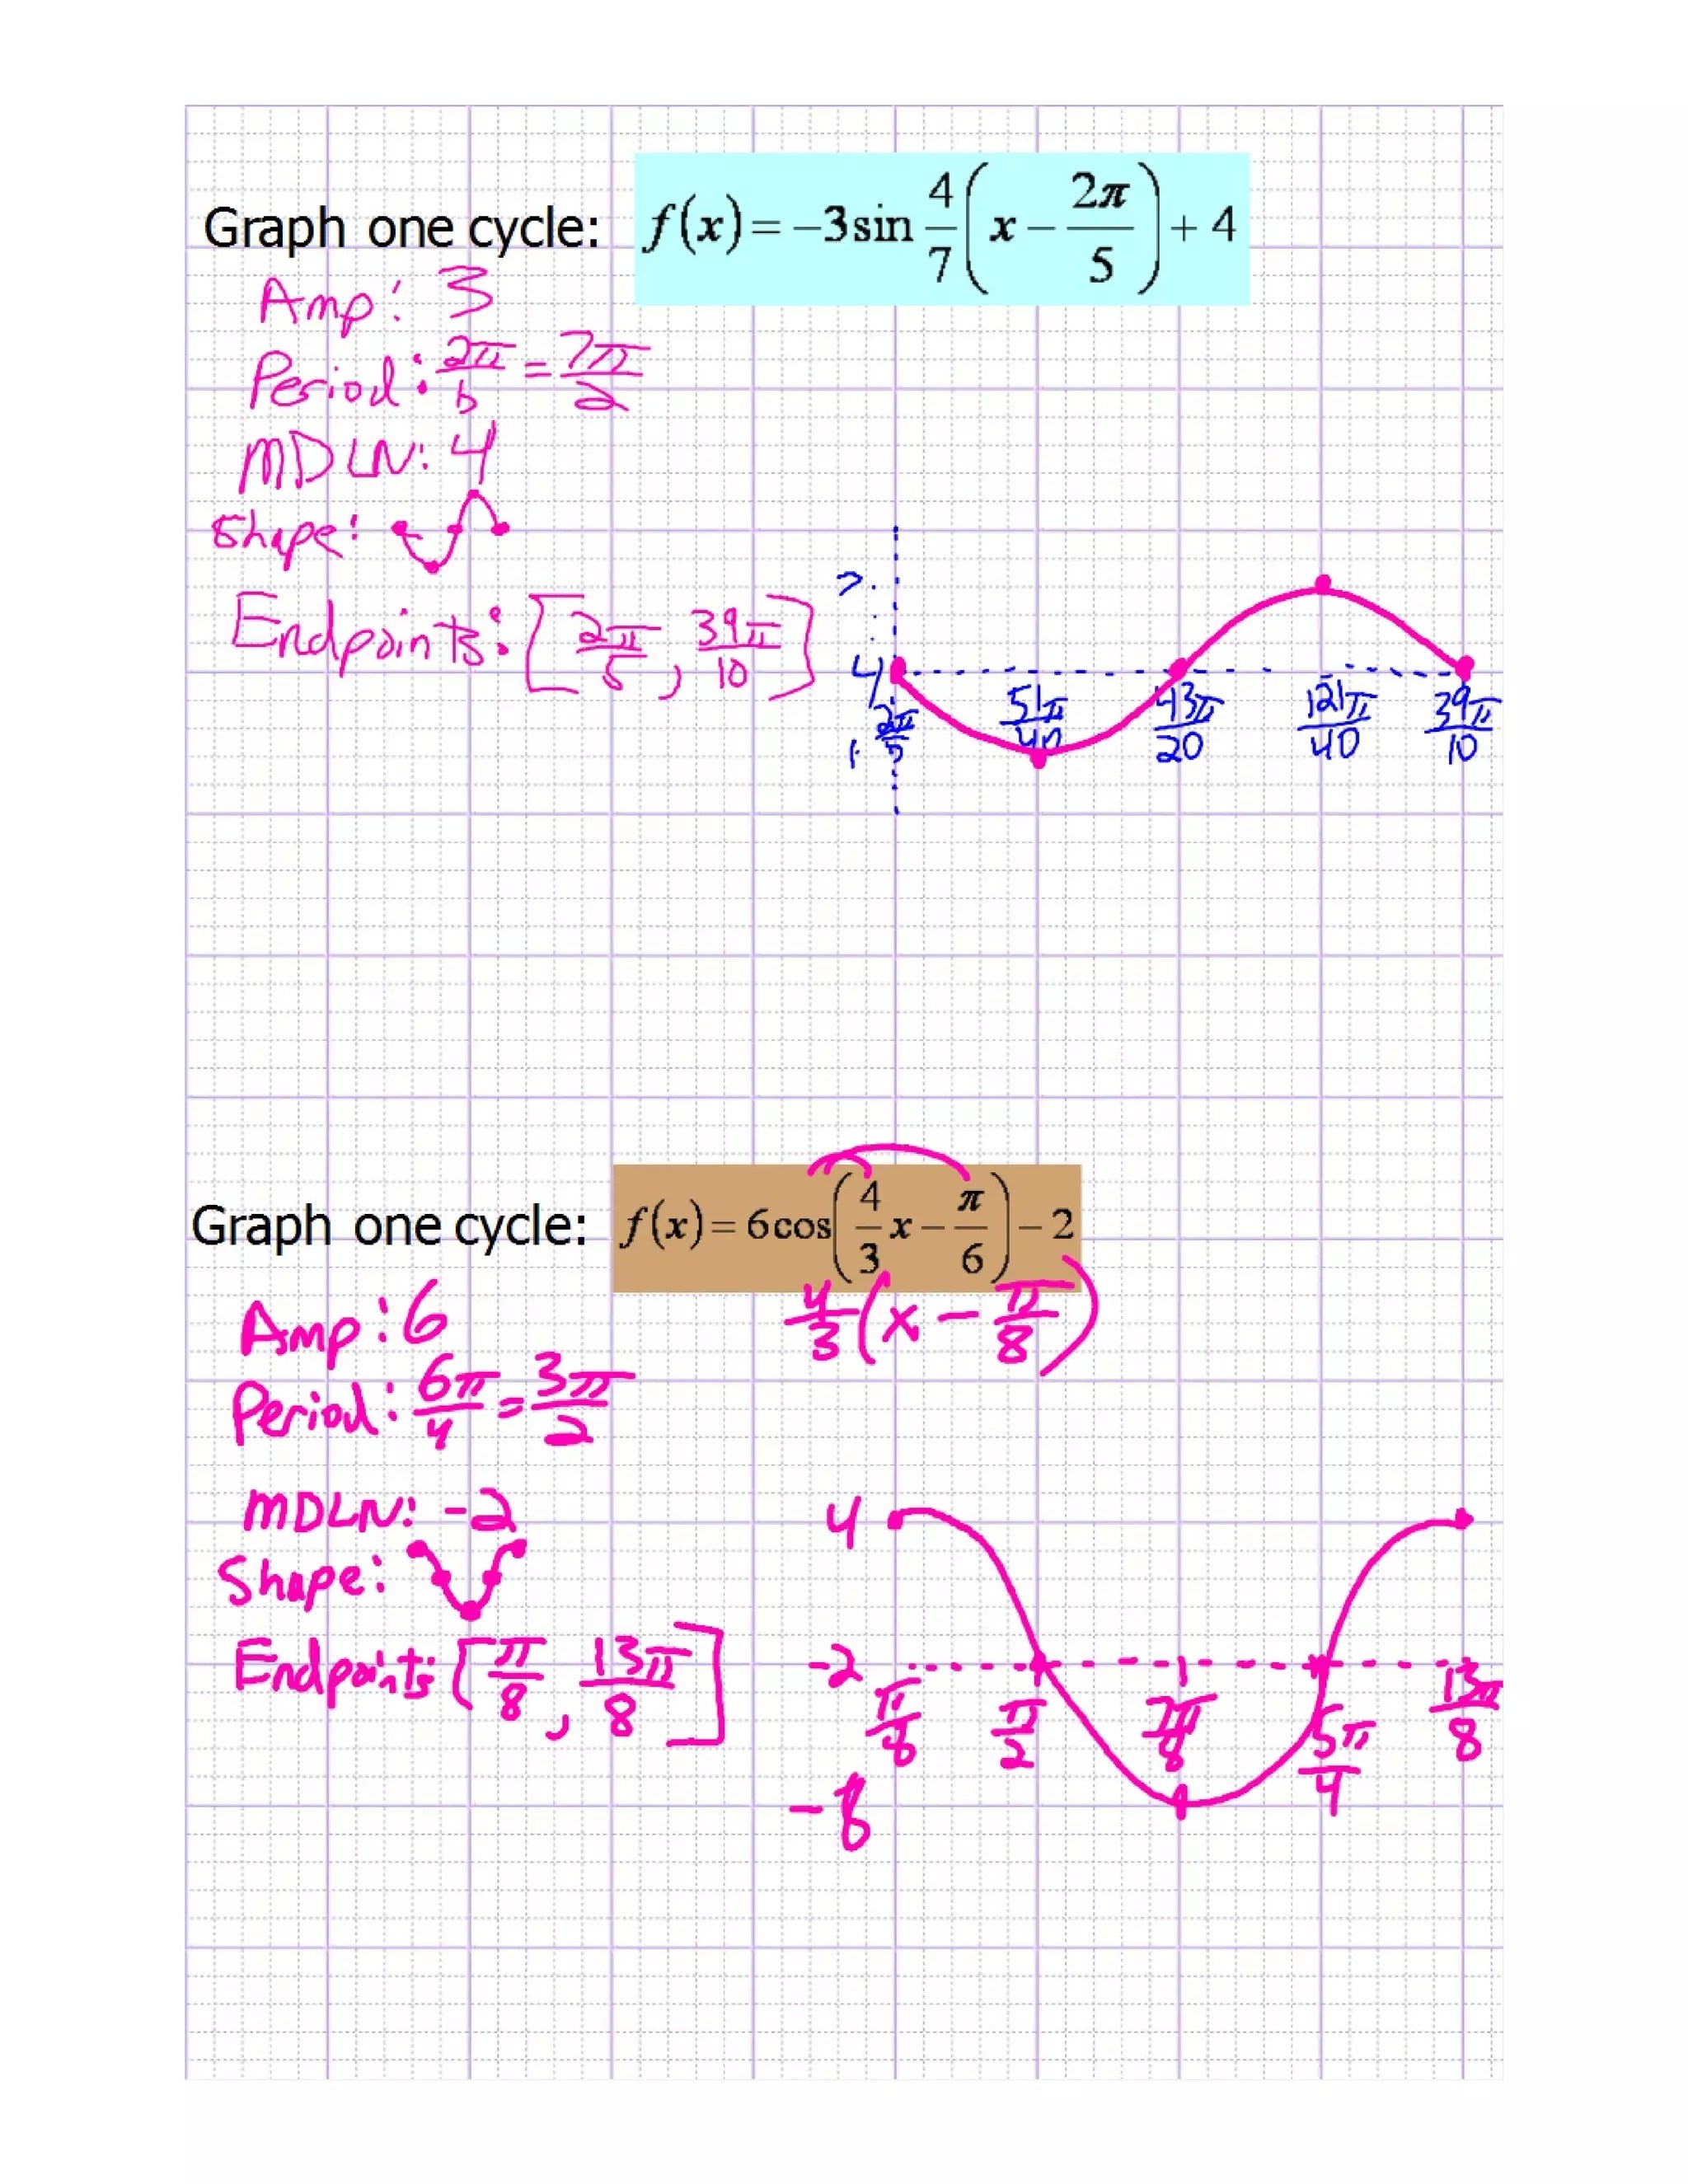 Graph one cycle: f(x) = -3 sin 4/7 (x - 2π/5) + 4
Amp: 3
Period: 2π/b = 7π/2
MDLN: 4
Shape:
Endpoints: [2π/5, 39π/10]
7
4
2π/5 51π/40 43π/20 121π/40 39π/10
1
Graph one cycle: f(x) = 6cos(4/3 x - π/6) - 2
4/3 (x - π/8)
Amp: 6
Period: 6π/4 = 3π/2
MDLN: -2
Shape:
Endpoints [π/8, 13π/8]
4
-2
π/8 π/2 7π/8 5π/4 13π/8
-8